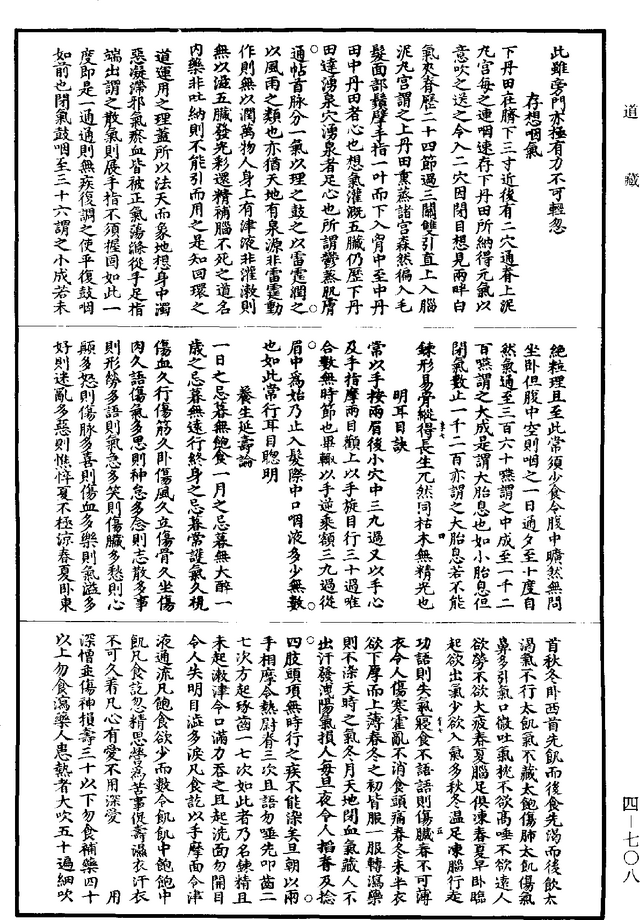 此雖旁門亦極有力不可輕忽
存想咽氣
下丹田在臍下三寸近後有二穴通脊上泥
九宮每之連咽速存下丹田所納得元氣以
意吹之送之令入二穴因閉目想見兩畔白
氣夾脊歷二十四節過三關雙引直上入腦
泥九宮謂之上丹田熏蒸諸宮森然徧入毛
髮面部頸摩手指一叶而下入胷中至中丹
田中丹田者心也想氣灌溉五臟仍歷下丹
田達湧泉穴湧泉者足心也所謂鬱蒸肌膚
通帖首脉分一氣以理之鼓之以雷霆潤之
以風雨之類也亦猶天地有泉源非雷霆動
作則無以潤萬物人身上有津液非灌漱則
無以滋五臟發光彩還精補腦不死之道名
內藥非吐納則不能引而用之是知回環之
道運用之理蓋所以法天而象地想身中濁
惡凝滯邪氣瘀血皆被正氣蕩滌從手足指
端出謂之散氣則展手指不須握固如此一
度即是一通通則無疾復調之使平復鼓咽
如前也閉氣鼓咽至三十六謂之小成若未
絕粒理且至此常須少食令腹中曠然無問
坐卧但腹中空則咽之一日通夕至十度自
然氣通至三百六十嚥謂之中成至一千二
百嚥謂之大成是謂大胎息也如小胎息但
閉氣數止一千二百亦謂之大胎息若不能
鍊形易骨縱得長生兀然同枯木無精光也
明耳目訣
常以手按兩眉後小穴中三九過又以手心
及手指摩兩目顴上以手旋目行三十過唯
合數無時節也畢輒以手逆乘額三九過從
眉中為始乃止入髮際中口咽液多少無數
也如此常行耳目聰明
養生延壽論
一日之忌暮無飽食一月之忌暮無大醉一
歲之忌暮無遠行終身之忌暮常護氣久視
傷血久行傷筋久卧傷風久立傷骨久坐傷
肉久語傷氣多思則神怠多念則志散多事
則形勞多語則氣急多笑則傷臟多愁則心
顛多怒則傷脉多喜則傷血多樂則氣溢多
好則迷亂多惡則憔悴夏不極涼春夏卧東
首秋冬卧西首先飢而後食先渴而後飲太
渴氣不行太飢氣不藏太飽傷肺太飢傷氣
鼻多引氣口微吐氣枕不欲高唾不欲遠人
欲勞不欲大疲春夏腦足俱凍春夏早卧臨
起欲出氣少欲入氣多秋冬溫足凍腦行走
功語則失氣寢食不語語則傷臟春不可薄
衣令人傷寒霍亂不消食頭痛春冬未半衣
欲下厚而上薄春冬之初皆服一服轉瀉藥
則不染天時之氣冬月天地閉血氣藏人不
出汗發洩陽氣損人每旦夜令人搯脊及捻
四肢頭項無時行之疾不能染矣旦朝以兩
手相摩令熱尉眷三次且語勿唾先叩齒二
七次方起琢齒一七次如此者乃名鍊精且
未起漱津令口滿力吞之且起洗面勿開目
令人失明目溢多淚凡食訖以手摩面令津
液通流凡飽食欲少而數令飢飢中飽飽中
飢凡食訖忽精思營為苦事促壽濕衣汗衣
不可久着凡心有愛不用深愛心有憎不用
深憎並傷神損壽三十以下勿食補藥四十
以上勿食瀉藥人患熱者大吹五十遍細吹
道藏
四—七〇八